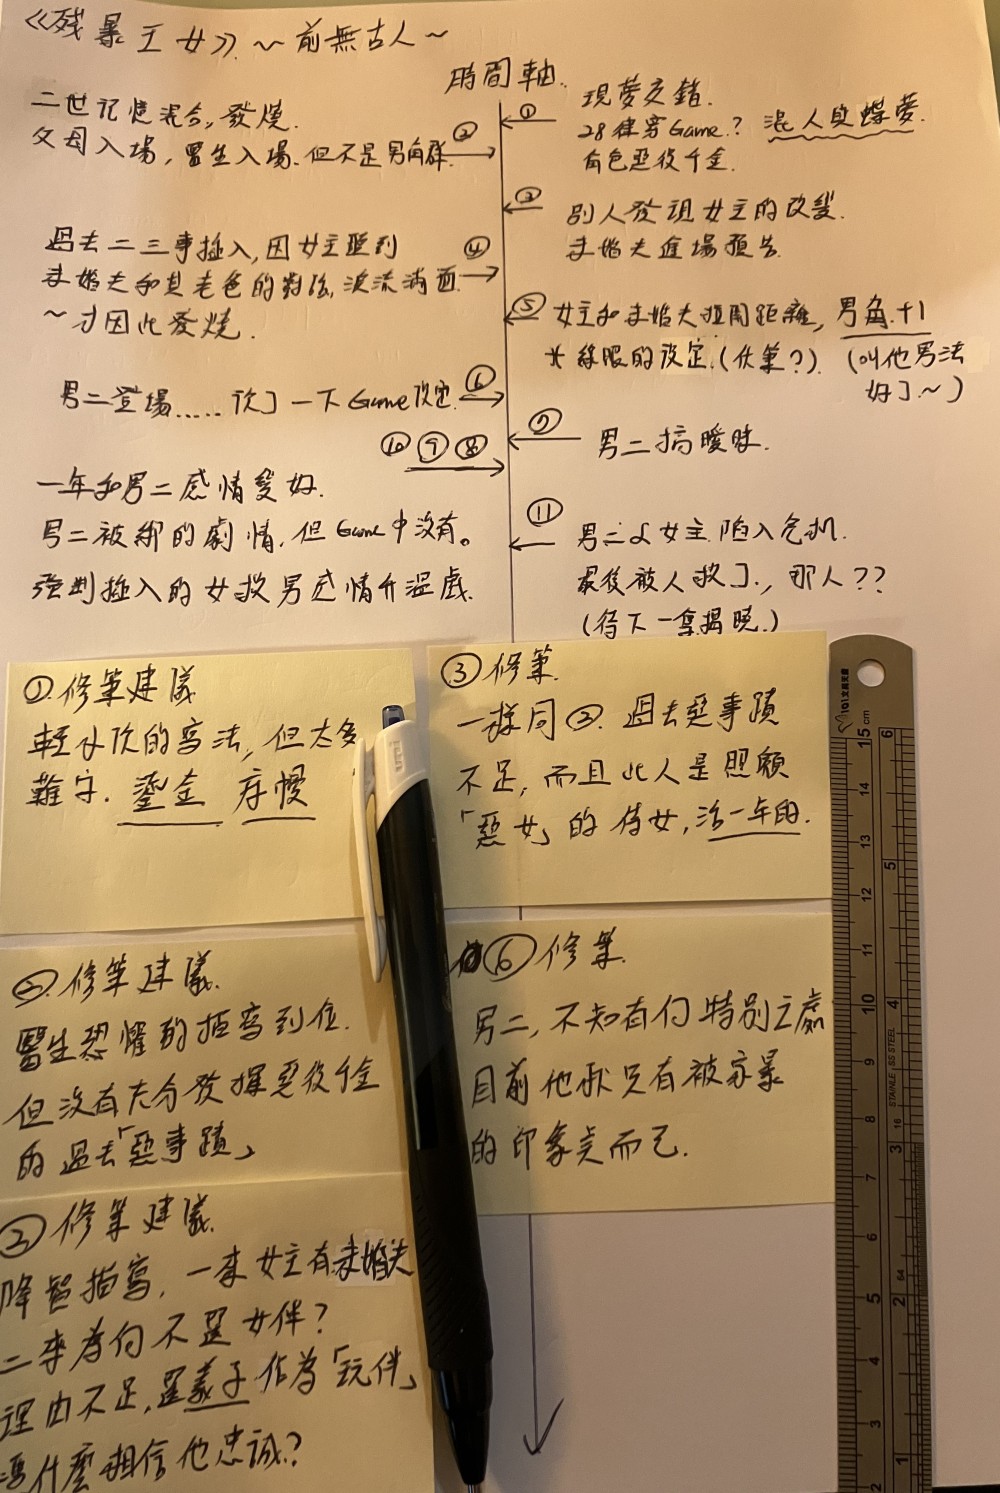 《残暴王女》~前無古人~
時間軸.
① 現夢交錯.
28律穿Game.? 混人與蝶夢.
有色惡役千金.
二世记憶混合,發燒.
父母入場,醫生入場.但不是男角群. ②
③ 別人發現女主的改變.
未婚夫進場預告.
過去二三事插入,因女主聽到 ④
未婚夫和其老爸的對話,淚流滿面.
~才因此發燒.
⑤ 女主和未婚夫拉開距離,男角+1
*綠眼的設定.(伏筆?). (叫他男法
好了~)
男二登場.....次了一下Game設定. ⑥
⑦ 男二搞曖昧.
⑩⑨⑧
一年和男二感情變好.
男二被綁的劇情,但Game中沒有。
強制插入的女救男感情升温戲.
⑪ 男二&女主.陷入危机.
最後被人救了.,那人??
(待下一章揭曉.)
①.修筆建議
輕小次的寫法,但太多
難字. 鎏金 床幔
②.修筆建議.
醫生恐懼的描寫到位.
但沒有充分發揮惡役千金
的過去「惡事蹟」
③修筆建議.
降智描寫,一來女主有未婚夫
二來為何不選女伴?
理由不足,選義子作為「玩伴」
憑什麼相信他忠誠?
③修筆.
一樣同②.過去惡事蹟
不足,而且此人是照顧
「惡女」的侍女,活一年的.
⑥修筆.
男二,不知有何特別之處
目前他就只有被家暴
的印象点而已.
15 cm
14
13
12
11
10
9
8
7
6
5
4
3
2
6
5
4
3
2
1
STAINLESS STEEL
16
64